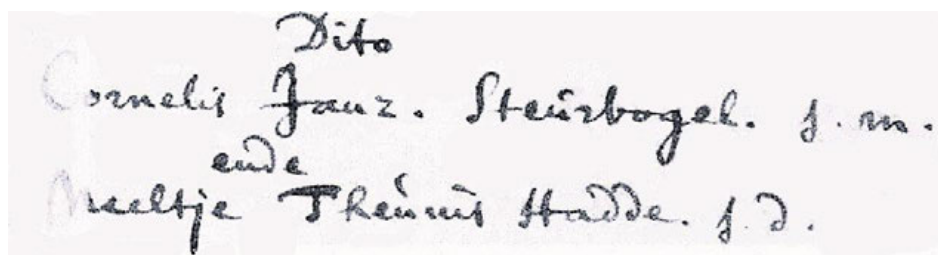 Dito
Cornelis Janz. Steurbogel. j. m.
ende
Neeltje Theunis Hadde. j. d.